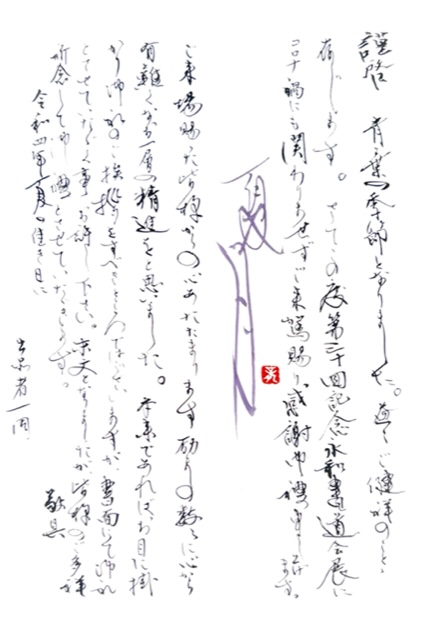 謹啓 青葉の季節となりました。益々ご健祥のことと
存じます。さてこの度第三十回記念永和書道会展に
コロナ禍にも関わりませずご来駕賜り感謝申し上げます。
夏
ご来場賜った皆様からの心あたたまります励ましの数々に心から
有難くなお一層の精進をと思いました。本来であればお目に掛
かり御礼のご挨拶をすべきところではございますが、書面にて御礼
とさせていただく事お許し下さい。末文となりましたが皆様のご多幸
祈念して御礼とさせていただきます。
令和四年夏 佳き日に
出品者一同
敬具